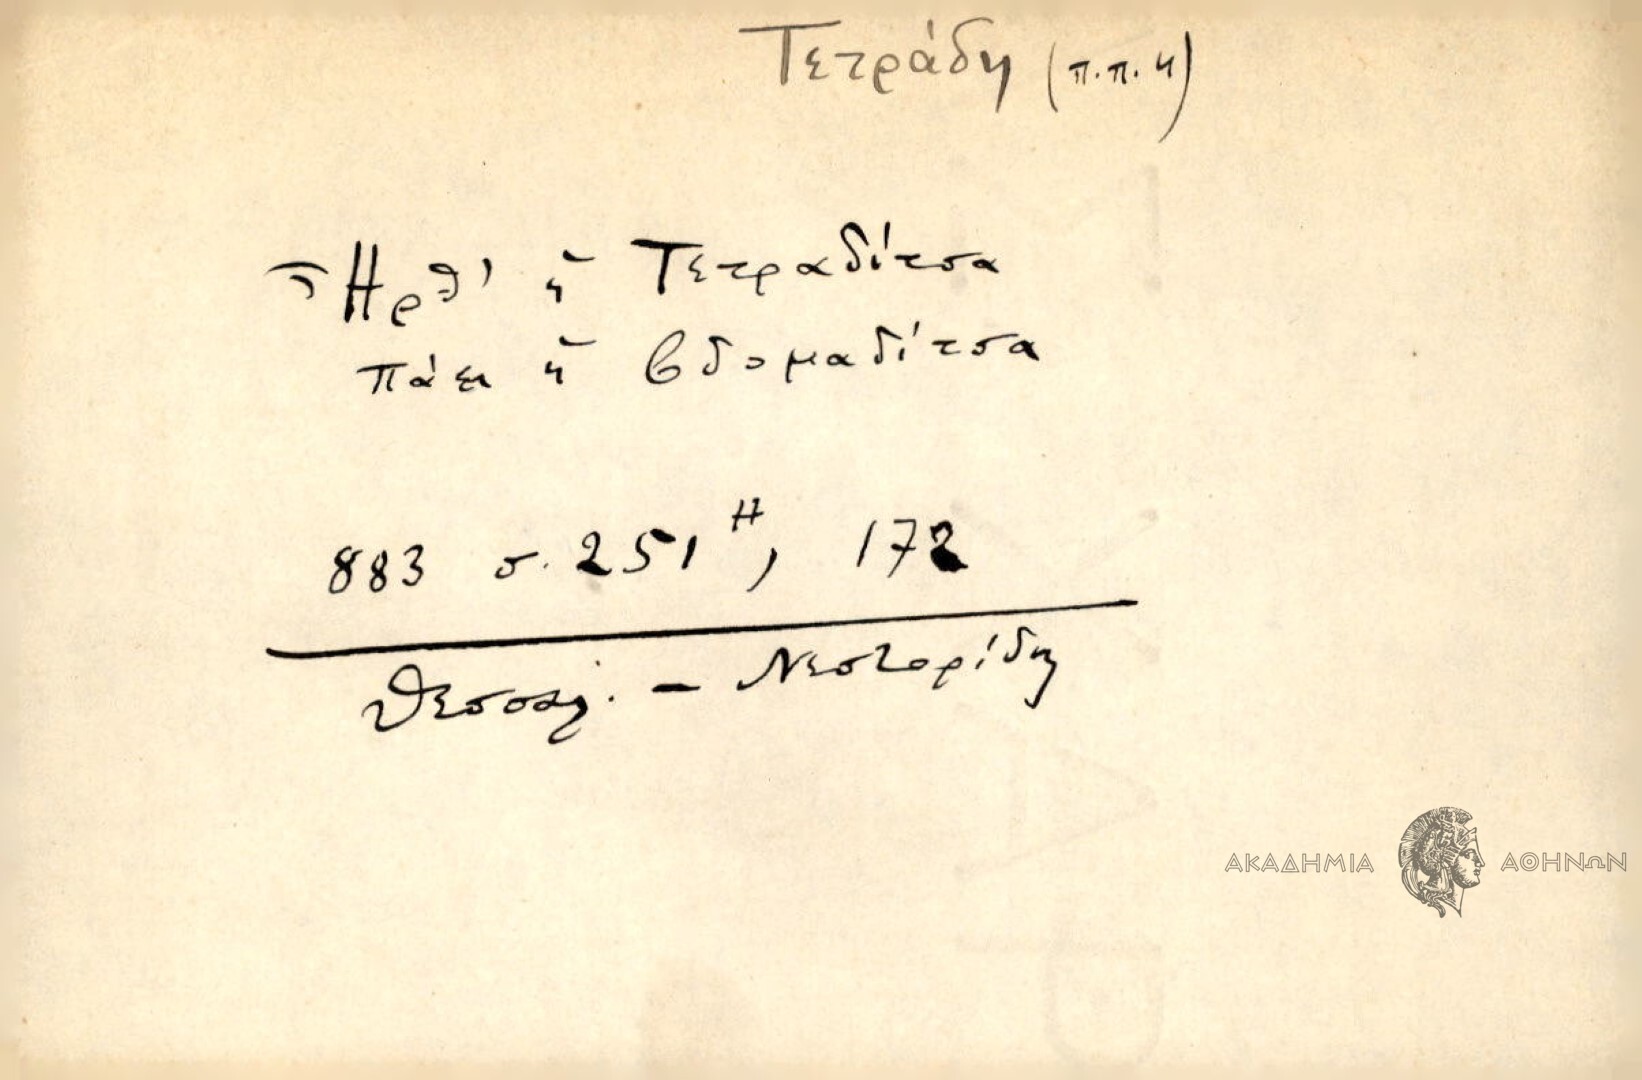 Τετράδη (π.π. 4)
Ἦρθ' ἡ Τετραδίτσα
πάει ἡ βδομαδίτσα
883 σ. 251 Η, 172
Θεσσαλ. – Νεστορίδη
ΑΚΑΔΗΜΙΑ ΑΘΗΝΩΝ